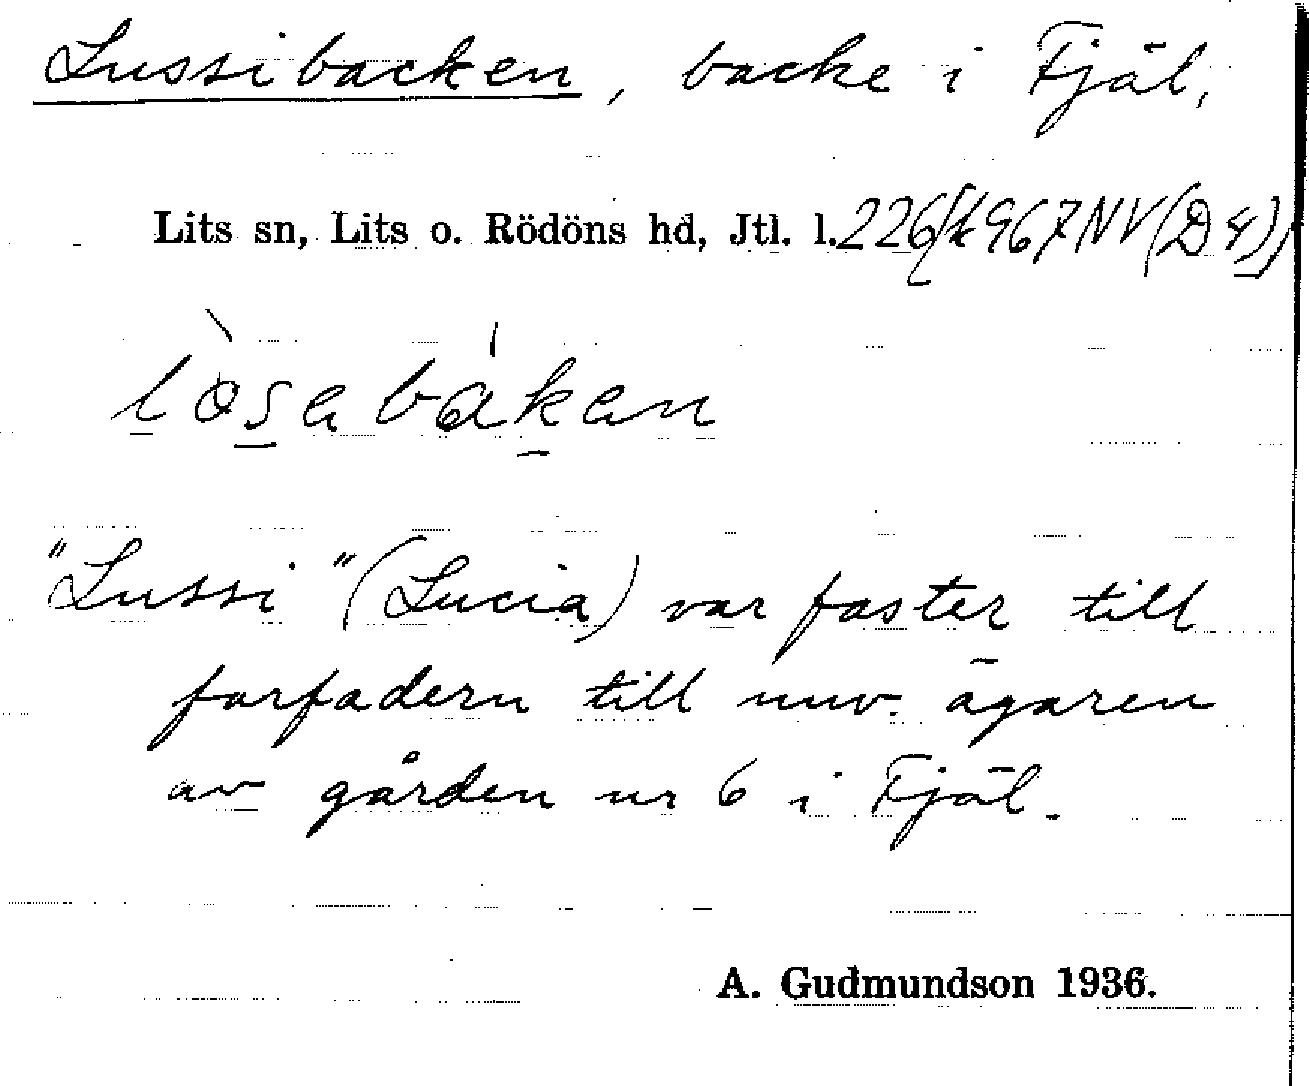 Lussibacken, backe i Fjäl,
Lits sn, Lits o. Rödöns hd, Jtl. l.
lòsabákan
"Lussi" (Lucia) var faster till
farfadern till nuv. ägaren
av gården nr 6 i Fjäl.
A. Gudmundson 1936.